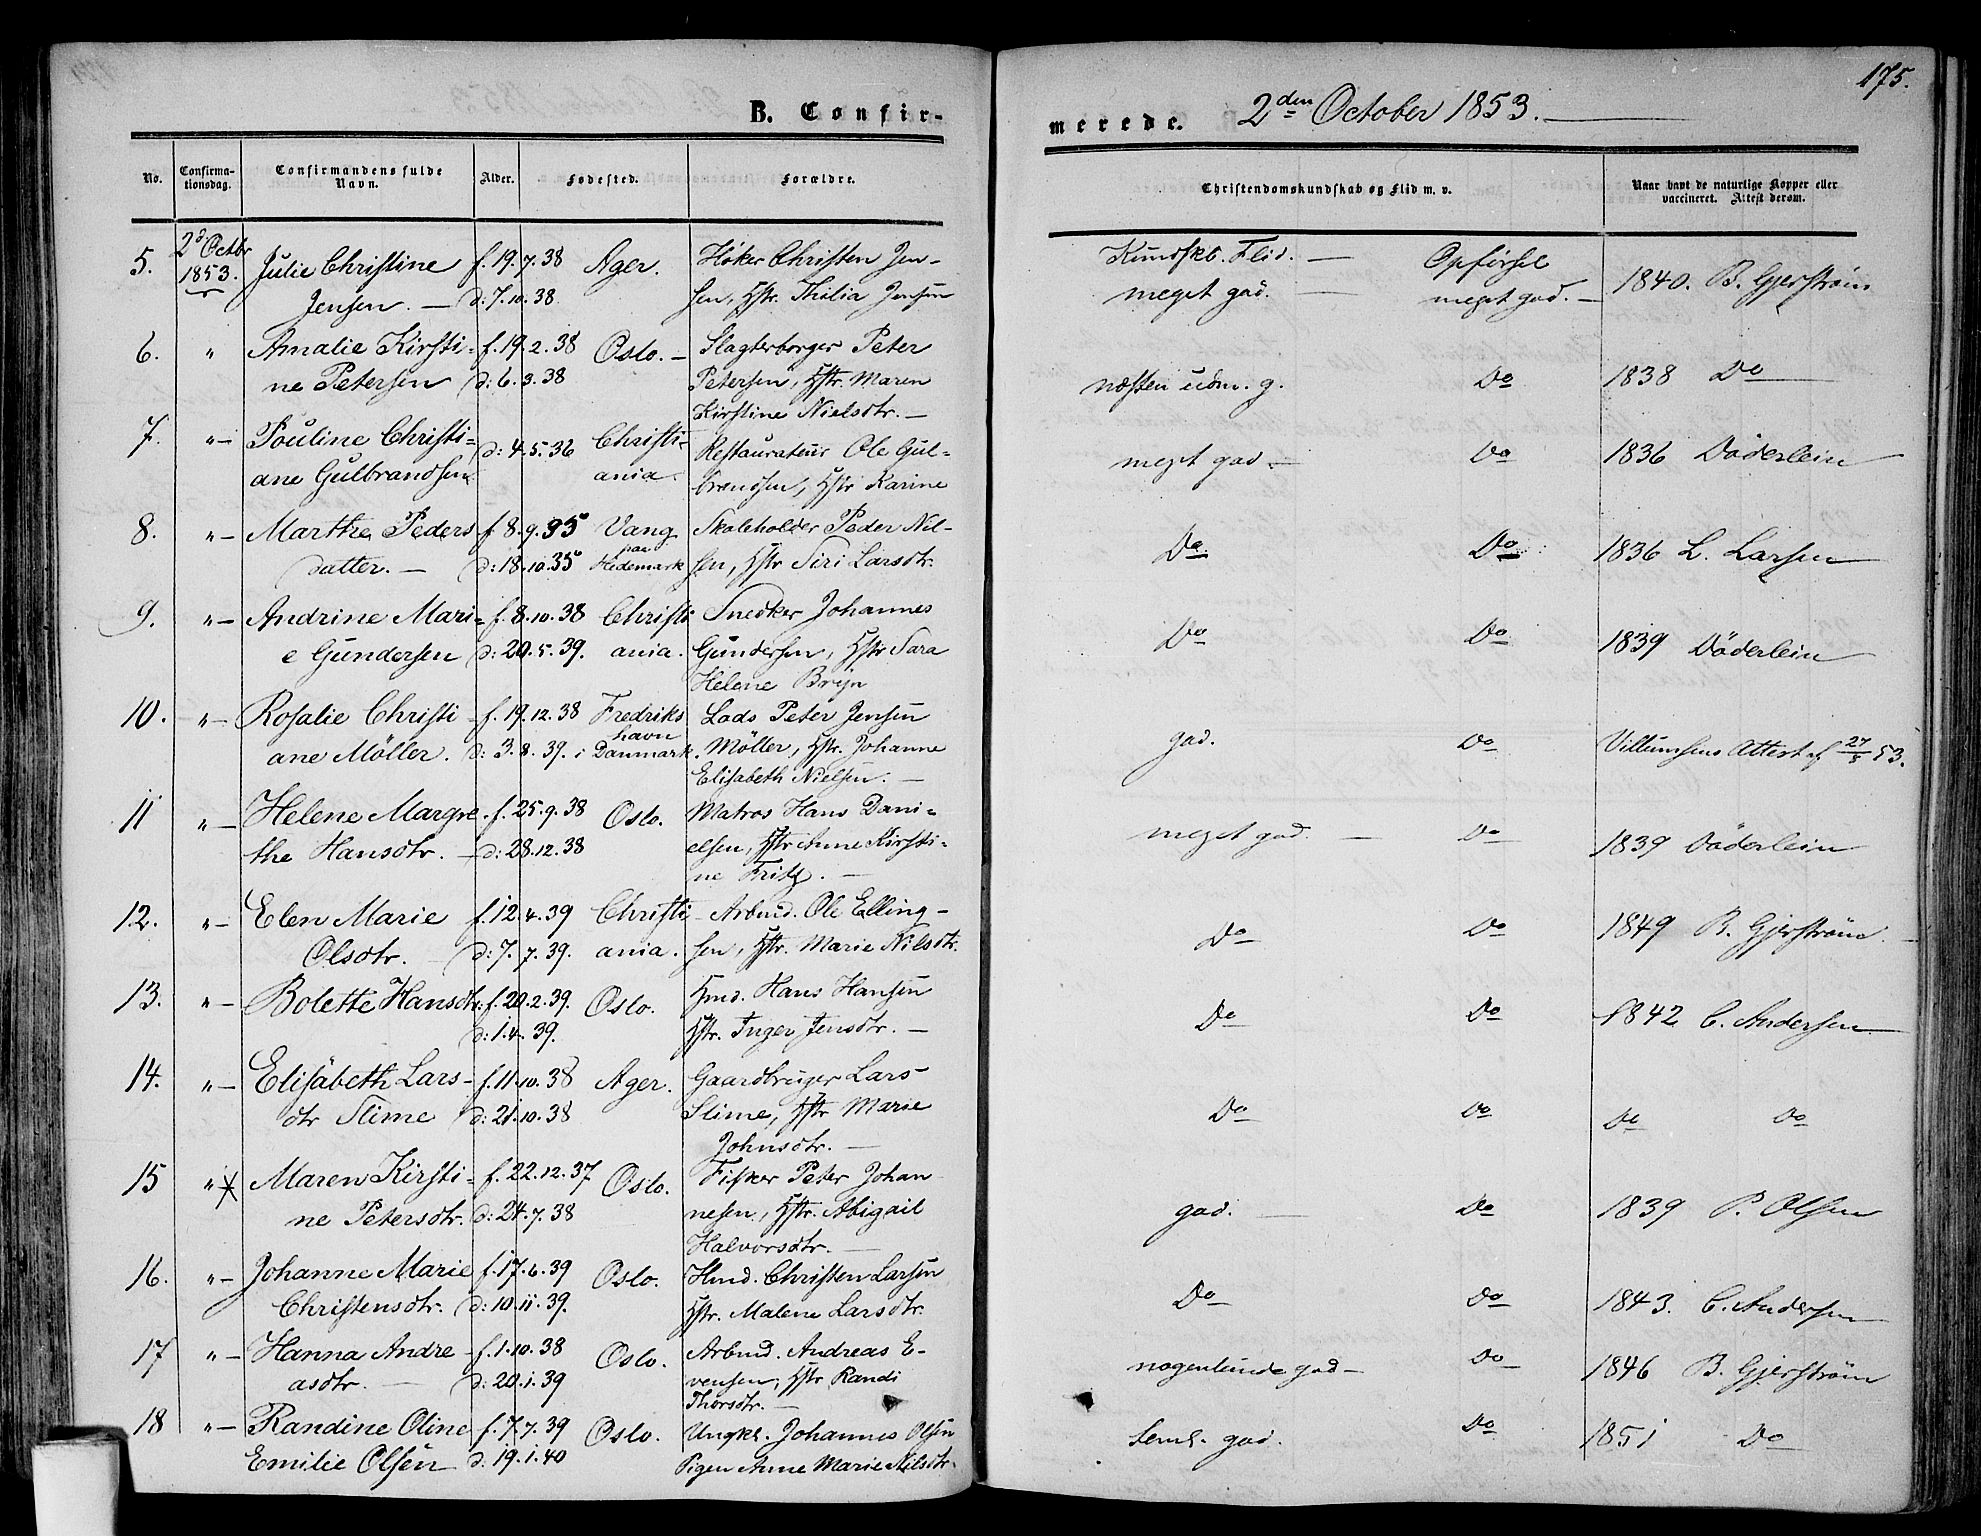 175.
B. Confir-
merede. 2den October 1853.
No.
Confirma-
tionsdag.
Confirmandens fulde
Navn.
Alder.
Fødested.
Forældre.
Christendomskundskab og Flid m. v.
Naar havt de naturlige Kopper eller
vaccineret. Attest derom.
5. 2d Octbr
1853.
Julie Christine
Jensen. —
f. 19.7.38
d: 7.10.38
Ager.
Høker Christen Jen-
sen, Hstr. Thilia Jensen
Kundskb. Flid. —
meget god. —
Opførsel
meget god. —
1840. B. Gjerstrøm
6. " Amalie Kirsti-
ne Petersen
f. 19.2.38
d: 6.3.38
Oslo. —
Slagterborger Peter
Petersen, Hstr. Maren
Kirstine Nielsdtr. —
næsten udm. g.
Do
1838 Do
7. " — Pouline Christi-
ane Gulbrandsen
d: 4.5.36
Christi-
ania.
Restaurateur Ole Gul-
brandsen, Hstr Karine
meget god —
Do
1836 Döderlein
8. " — Marthe Peders
datter. —
f 8.9.35
d: 18.10.35
Vang
paa
Hedemark
Skoleholder Peder Nil-
sen, Hstr Siri Larsdtr.
Do
Do
1836 L. Larsen
9. " — Andrine Mari-
e Gundersen
f. 8.10.38
d: 20.5.39.
Christi
ania.
Snedker Johannes
Gundersen, Hstr Sara
Helene Bryn
Do
Do
1839 Döderlein
10. " — Rosalie Christi
ane Møller.
f. 19.12.38
d: 3.8.39.
Fredriks
havn
i Danmark.
Lods Peter Jensen
Møller, Hstr. Johanne
Elisabeth Nielsen. —
god.
Do
Villumsens Attest af 27/8 53.
11 " — Helene Margre
the Hansdtr. —
f. 25.9.38
d: 28.12.38
Oslo.
Matros Hans Dani-
elsen, Hstr Anne Kirsti-
ne Fritz. —
meget god. —
Do
1839 Döderlein
12. " — Elen Marie
Olsdtr. —
f. 12.4.39
d: 7.7.39.
Christi
ania.
Arbmd. Ole Elling-
sen, Hstr. Marie Nilsdtr.
Do
Do
1849 B. Gjerstrøm.
13. " — Bolette Hansdtr.
f. 20.2.39.
d: 1.4.39.
Oslo.
Hmd. Hans Hansen
Hstr. Inger Jensdtr. —
Do
Do
1842 C. Andersen
14. " — Elisabeth Lars-
dtr Slime
f. 11.10.38
d: 21.10.38
Ager.
Gaardbruger Lars
Slime, Hstr Marie
Johnsdtr. —
Do
Do
Do Do
15 " Maren Kirsti-
ne Petersdtr.
f. 22.12.37
d: 24.7.38
Oslo.
Fisker Peter Johan
nesen, Hstr. Abigail
Halvorsdtr. —
god. —
Do
1839 P. Olsen
16. " — Johanne Marie
Christensdtr.
f. 17.6.39
d: 10.11.39.
Oslo.
Hmd. Christen Larsen
Hstr. Malene Larsdtr.
Do
Do
1843. C. Andersen
17 " — Hanna Andre-
asdtr. —
f. 1.10.38
d: 20.1.39
Oslo.
Arbmd. Andreas E-
vensen, Hstr Randi
Thorsdtr. —
nogenlunde god —
Do
1846 B. Gjerstrøm
18 " — Randine Oline
Emilie Olsen
f. 7.7.39
d. 19.1.40
Oslo.
Ungkl. Johannes Olsen
Pigen Anne Marie Nilsdtr.
teml. god.
Do
1851 Do